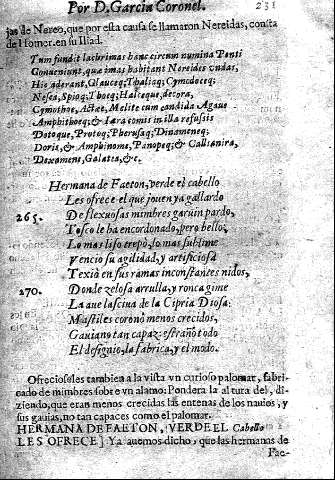 Por D. Garcia Coronel. 231
jas de Nereo, que por esta causa se llamaron Nereidas, consta
de Homer. en su Iliad.
Tum fundit lachrimas hanc circum numina Ponti
Conueniunt, quæ imas habitant Nereides undas,
His aderant, Glauceq; Thaliaq; Cymodoceq;
Nesea, Spioq; Thoeq; Halieque, decora,
Cymothoe, Actæe, Melite tum candida Agaue
Amphithoeq; & Iæra comis in illa refusis
Dotoque, Protoq; Pherusaq; Dinameneq;
Doris, & Amphinome, Panopeq; & Callianira,
Dexamene, Galatea, &c.
Hermana de Faeton, verde el cabello
Les ofrece el que jouen ya gallardo
265. De flexuosas mimbres garuin pardo,
Tosco le ha encordonado, pero bello,
Lo mas liso trepò, lo mas sublime
Vencio su agilidad, y artificiosa
Texiò en sus ramas inconstantes nidos,
270. Donde zelosa arrulla, y ronca gime
La aue lasciua de la Cipria Diosa:
Mastiles coronò menos crecidos,
Gauia no tan capaz: estraño todo
El designio, la fabrica, y el modo.
Ofrecioseles tambien a la vista vn curioso palomar, fabri-
cado de mimbres sobre vn alamo: Pondera la altura del, di-
ziendo, que eran menos crecidas las entenas de los nauios, y
sus gauias, no tan capaces como el palomar.
HERMANA DE FAETON, VERDE EL Cabello
LES OFRECE] Ya auemos dicho, que las hermanas de
Fae-